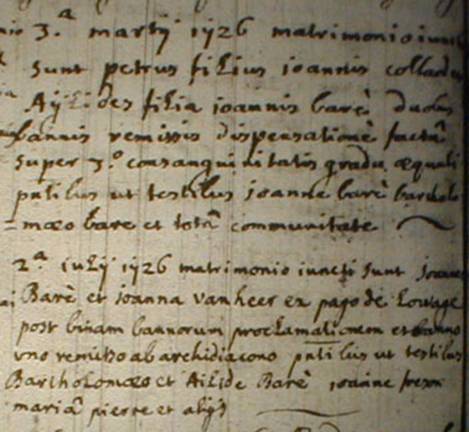 3.ª martij 1726 matrimonio iuncti
sunt petrus filius joannis collard
filia joannis barè duobus
bannis remissis dispensatione facta
super 3.º consanguinitatis gradu æquali
pñtibus ut testibus joanne barè bartholo
=mæo bare et tota communitate
2.ª iulij 1726 matrimonio iuncti sunt joannes
Barè et joanna vanheer ex pago de Loutage
post binam bannorum proclamationem et banno
uno remisso ab archidiacono pñtibus ut testibus
Bartholomæo et Ailide Barè joanne
mariâ pierre et alijs